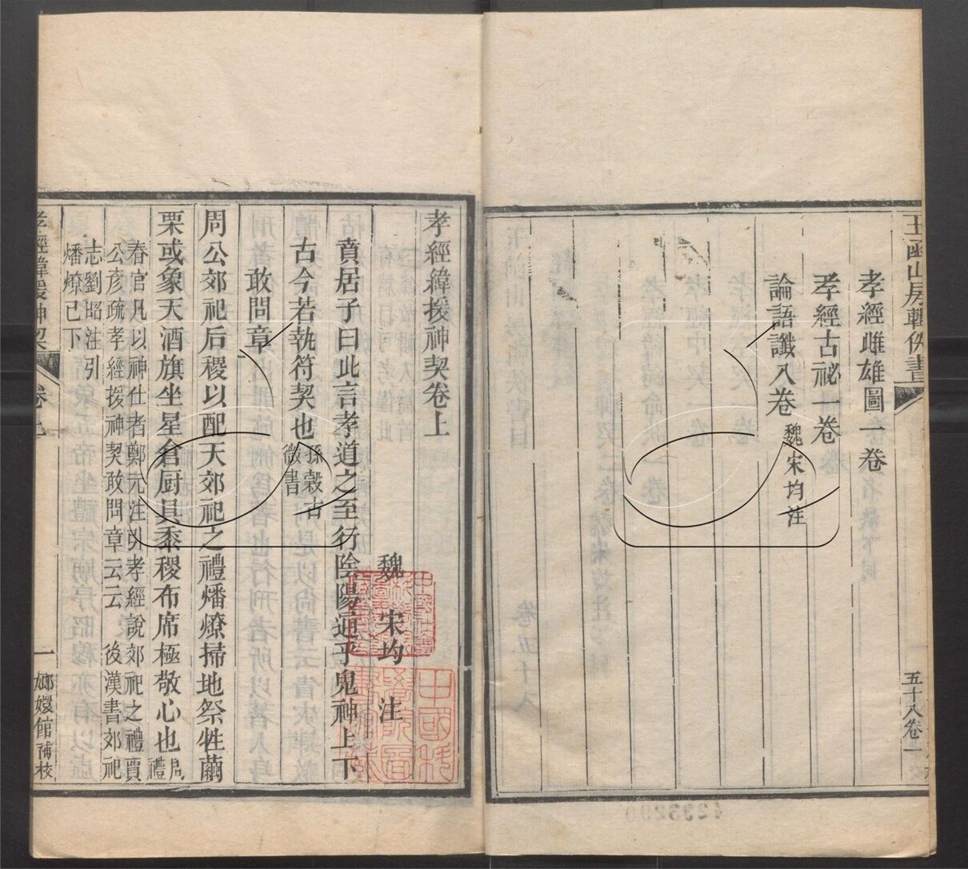 玉函山房輯佚書
五十八卷一
孝經雌雄圖一卷
孝經古祕一卷
論語讖八卷魏宋均注
孝經緯援神契卷上
魏 宋均 注
賁居子曰此言孝道之至行陰陽通乎鬼神上下
古今若執符契也孫瑴古
微書
敢問章
周公郊祀后稷以配天郊祀之禮燔燎掃地祭牲繭
栗或象天酒旗坐星倉厨具黍稷布席極敬心也周
禮
春官凡以神仕者鄭元注引孝經說郊祀之禮賈
公彥疏孝經援神契敢問章云云 後漢書郊祀
志劉昭注引
燔燎已下
孝經緯援神契 卷上 一 嫏嬛館補校